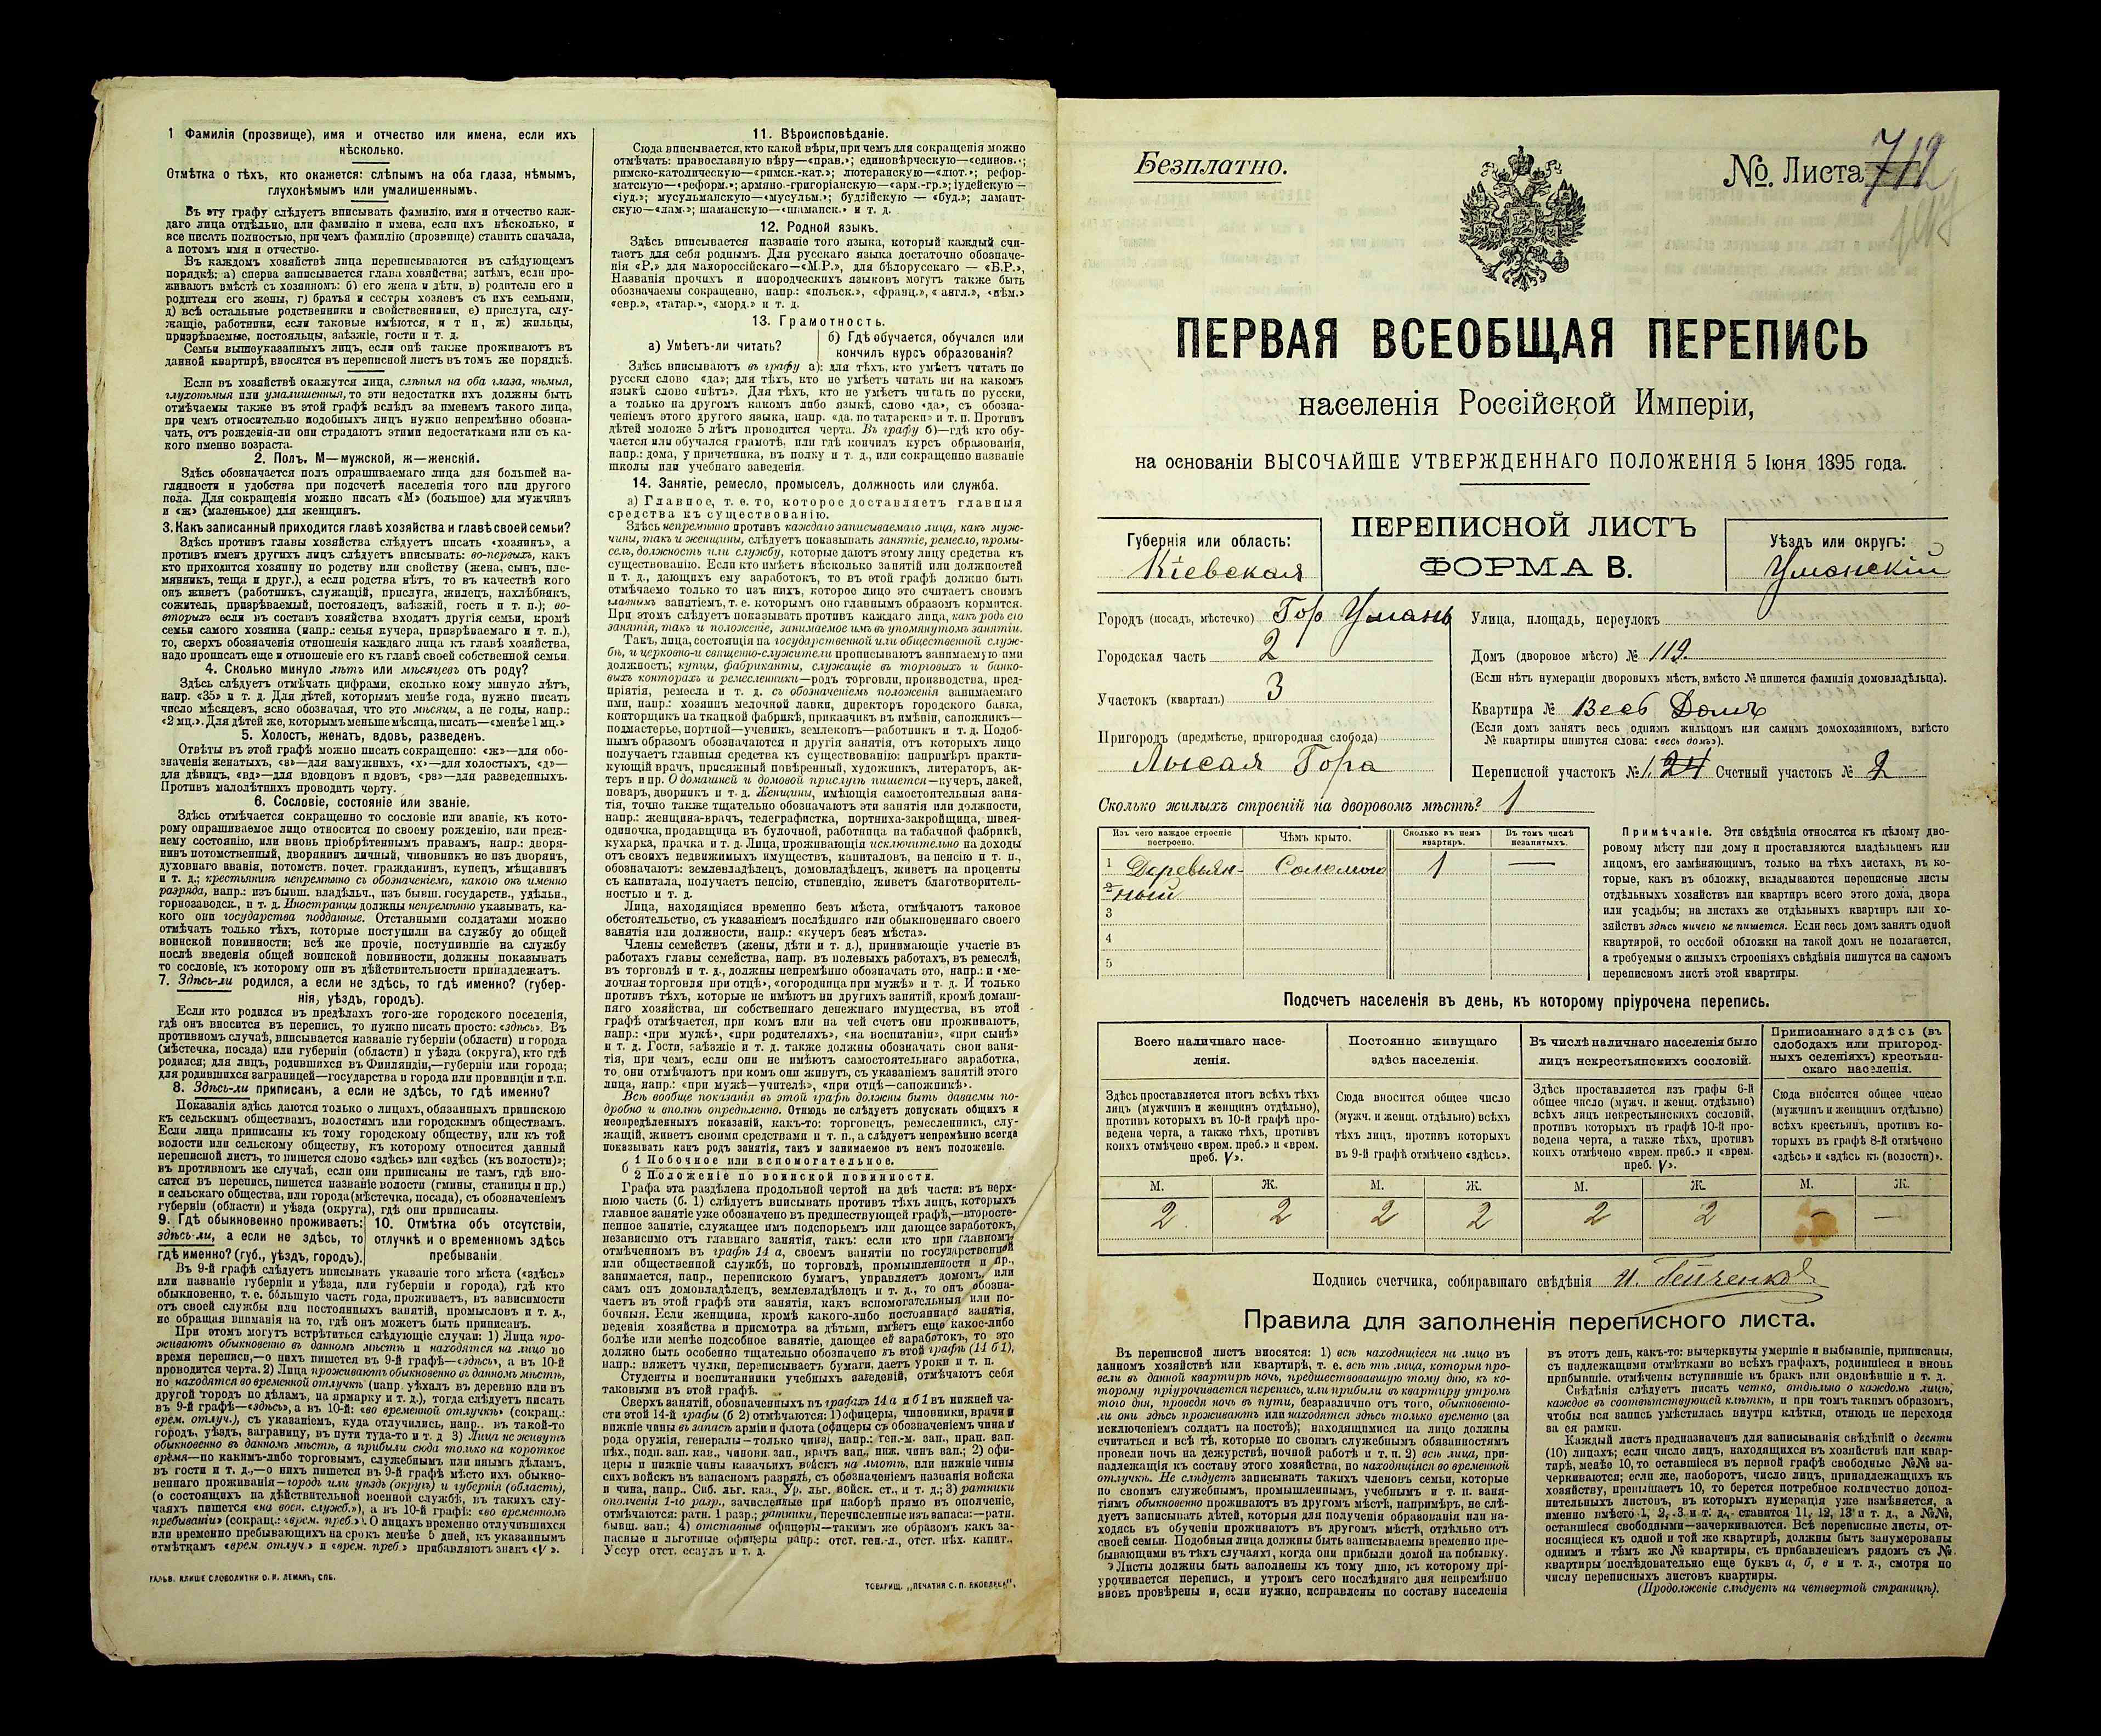 1 Фамилія (прозвище), имя и отчество или имена, если ихъ
нѣсколько.
Отмѣтка о тѣхъ, кто окажется: слѣпымъ на оба глаза, нѣмымъ,
глухонѣмымъ или умалишеннымъ.
Въ эту графу слѣдуетъ вписывать фамилію, имя и отчество каж-
даго лица отдѣльно, или фамилію и имена, если ихъ нѣсколько, и
все писать полностью, при чемъ фамилію (прозвище) ставить сначала,
а потомъ имя и отчество.
Въ каждомъ хозяйствѣ лица переписываются въ слѣдующемъ
порядкѣ: а) сперва записывается глава хозяйства; затѣмъ, если про-
живаютъ вмѣстѣ съ хозяиномъ: б) его жена и дѣти, в) родители его и
родители его жены, г) братья и сестры хозяевъ съ ихъ семьями,
д) всѣ остальные родственники и свойственники, е) прислуга, слу-
жащіе, работники, если таковые имѣются, и т п, ж) жильцы,
призрѣваемые, постояльцы, заѣзжіе, гости и т. д.
Семьи вышеуказанныхъ лицъ, если онѣ также проживаютъ въ
данной квартирѣ, вносятся въ переписной листъ въ томъ же порядкѣ.
Если въ хозяйствѣ окажутся лица, слѣпыя на оба глаза, нѣмыя,
глухонѣмыя или умалишенныя, то эти недостатки ихъ должны быть
отмѣчаемы также въ этой графѣ вслѣдъ за именемъ такого лица,
при чемъ относительно подобныхъ лицъ нужно непремѣнно обозна-
чать, отъ рожденія-ли они страдаютъ этими недостатками или съ ка-
кого именно возраста.
2. Полъ. М—мужской, ж—женскій.
Здѣсь обозначается полъ опрашиваемаго лица для большей на-
глядности и удобства при подсчетѣ населенія того или другого
пола. Для сокращенія можно писать «М» (большое) для мужчинъ
и «ж» (маленькое) для женщинъ.
3. Какъ записанный приходится главѣ хозяйства и главѣ своей семьи?
Здѣсь противъ главы хозяйства слѣдуетъ писать «хозяинъ», а
противъ именъ другихъ лицъ слѣдуетъ вписывать: во-первыхъ, какъ
кто приходится хозяину по родству или свойству (жена, сынъ, пле-
мянникъ, теща и друг.), а если родства нѣтъ, то въ качествѣ кого
онъ живетъ (работникъ, служащій, прислуга, жилецъ, нахлѣбникъ,
сожитель, призрѣваемый, постоялецъ, заѣзжій, гость и т. п.); во-
вторыхъ если въ составъ хозяйства входятъ другія семьи, кромѣ
семьи самого хозяина (напр.: семья кучера, призрѣваемаго и т. п.),
то, сверхъ обозначенія отношенія каждаго лица къ главѣ хозяйства,
надо прописать еще и отношеніе его къ главѣ своей собственной семьи.
4. Сколько минуло лѣтъ или мѣсяцевъ отъ роду?
Здѣсь слѣдуетъ отмѣчать цифрами, сколько кому минуло лѣтъ,
напр. «35» и т. д. Для дѣтей, которымъ менѣе года, нужно писать
число мѣсяцевъ, ясно обозначая, что это мѣсяцы, а не годы, напр.:
«2 мц.». Для дѣтей же, которымъ меньше мѣсяца, писать—«менѣе 1 мц.»
5. Холостъ, женатъ, вдовъ, разведенъ.
Отвѣты въ этой графѣ можно писать сокращенно: «ж»—для обо-
значенія женатыхъ, «з»—для замужнихъ, «х»—для холостыхъ, «д»—
для дѣвицъ, «вд»—для вдовцовъ и вдовъ, «рв»—для разведенныхъ.
Противъ малолѣтнихъ проводить черту.
6. Сословіе, состояніе или званіе.
Здѣсь отмѣчается сокращенно то сословіе или званіе, къ кото-
рому опрашиваемое лицо относится по своему рожденію, или преж-
нему состоянію, или вновь пріобрѣтеннымъ правамъ, напр.: дворя-
нинъ потомственный, дворянинъ личный, чиновникъ не изъ дворянъ,
духовнаго званія, потомств. почет. гражданинъ, купецъ, мѣщанинъ
и т. д.; крестьянинъ непремѣнно съ обозначеніемъ, какого онъ именно
разряда, напр.: изъ бывш. владѣльч., изъ бывш. государств., удѣльн.,
горнозаводск., и т. д. Иностранцы должны непремѣнно указывать, ка-
кого они государства подданные. Отставными солдатами можно
отмѣчать только тѣхъ, которые поступили на службу до общей
воинской повинности; всѣ же прочіе, поступившіе на службу
послѣ введенія общей воинской повинности, должны показывать
то сословіе, къ которому они въ дѣйствительности принадлежатъ.
7. Здѣсь-ли родился, а если не здѣсь, то гдѣ именно? (губер-
нія, уѣздъ, городъ).
Если кто родился въ предѣлахъ того-же городского поселенія,
гдѣ онъ вносится въ перепись, то нужно писать просто: «здѣсь». Въ
противномъ случаѣ, вписывается названіе губерніи (области) и города
(мѣстечка, посада) или губерніи (области) и уѣзда (округа), гдѣ кто
родился; для лицъ, родившихся въ Финляндіи,—губерніи или города;
для родившихся заграницей—государства и города или провинціи и т.п.
8. Здѣсь-ли приписанъ, а если не здѣсь, то гдѣ именно?
Показанія здѣсь даются только о лицахъ, обязанныхъ припискою
къ сельскимъ обществамъ, волостямъ или городскимъ обществамъ.
Если лица приписаны къ тому городскому обществу, или къ той
волости или сельскому обществу, къ которому относится данный
переписной листъ, то пишется слово «здѣсь» или «здѣсь (къ волости)»;
въ противномъ же случаѣ, если они приписаны не тамъ, гдѣ вно-
сятся въ перепись, пишется названіе волости (гмины, станицы и пр.)
и сельскаго общества, или города (мѣстечка, посада), съ обозначеніемъ
губерніи (области) и уѣзда (округа), гдѣ они приписаны.
9. Гдѣ обыкновенно проживаетъ: здѣсь-ли, а если не здѣсь, то гдѣ именно? (губ., уѣздъ, городъ).
10. Отмѣтка объ отсутствіи, отлучкѣ и о временномъ здѣсь пребываніи
Въ 9-й графѣ слѣдуетъ вписывать указаніе того мѣста («здѣсь»
или названіе губерніи и уѣзда, или губерніи и города), гдѣ кто
обыкновенно, т. е. большую часть года, проживаетъ, въ зависимости
отъ своей службы или постоянныхъ занятій, промысловъ и т. д.,
не обращая вниманія на то, гдѣ онъ можетъ быть приписанъ.
При этомъ могутъ встрѣтиться слѣдующіе случаи: 1) Лица про-
живаютъ обыкновенно въ данномъ мѣстѣ и находятся на лицо во
время переписи,—о нихъ пишется въ 9-й графѣ—«здѣсь», а въ 10-й
проводится черта. 2) Лица проживаютъ обыкновенно въ данномъ мѣстѣ,
но находятся во временной отлучкѣ (напр. уѣхалъ въ деревню или въ
другой городъ по дѣламъ, на ярмарку и т. д.), тогда слѣдуетъ писать
въ 9-й графѣ—«здѣсь», а въ 10-й: «во временной отлучкѣ» (сокращ.:
врем. отлуч.), съ указаніемъ, куда отлучились, напр.. въ такой-то
городъ, уѣздъ, заграницу, въ пути туда-то и т. д 3) Лица не живутъ
обыкновенно въ данномъ мѣстѣ, а прибыли сюда только на короткое
время—по какимъ-либо торговымъ, служебнымъ или инымъ дѣламъ,
въ гости и т. д.,—о нихъ пишется въ 9-й графѣ мѣсто ихъ обыкно-
веннаго проживанія—городъ или уѣздъ (округъ) и губернія (область),
(о состоящихъ на дѣйствительной военной службѣ, въ такихъ слу-
чаяхъ пишется «на воен. службѣ»), а въ 10-й графѣ: «во временномъ
пребываніи» (сокращ.: «врем. преб.»). О лицахъ временно отлучившихся
или временно пребывающихъ на срокъ менѣе 5 дней, къ указаннымъ
отмѣткамъ «врем. отлуч.» и «врем. преб.» прибавляютъ знакъ «V».
ГАЛЬВ. КЛИШЕ СЛОВОЛИТНИ О. И. ЛЕМАНЪ, СПБ.
11. Вѣроисповѣданіе.
Сюда вписывается, кто какой вѣры, при чемъ для сокращенія можно
отмѣчать: православную вѣру—«прав.»; единовѣрческую—«единов.»;
римско-католическую—«римск.-кат.»; лютеранскую—«лют.»; рефор-
матскую—«реформ.»; армяно-григоріанскую—«арм.-гр.»; іудейскую—
«іуд.»; мусульманскую—«мусульм.»; буддійскую — «буд.»; ламаит-
скую—«лам.»; шаманскую—«шаманск.» и т. д.
12. Родной языкъ.
Здѣсь вписывается названіе того языка, который каждый счи-
таетъ для себя роднымъ. Для русскаго языка достаточно обозначе-
нія «Р.» для малороссійскаго—«М.Р.», для бѣлорусскаго — «Б.Р.»,
Названія прочихъ и инородческихъ языковъ могутъ также быть
обозначаемы сокращенно, напр: «польск.», «франц.», «англ.», «нѣм.»
«евр.», «татар.», «морд.» и т. д.
13. Грамотность.
а) Умѣетъ-ли читать?
б) Гдѣ обучается, обучался или кончилъ курсъ образованія?
Здѣсь вписываютъ въ графу а): для тѣхъ, кто умѣетъ читать по
русски слово «да»; для тѣхъ, кто не умѣетъ читать ни на какомъ
языкѣ слово «нѣтъ». Для тѣхъ, кто не умѣетъ читать по русски,
а только на другомъ какомъ либо языкѣ, слово «да», съ обозна-
ченіемъ этого другого языка, напр. «да, по татарски» и т. п. Противъ
дѣтей моложе 5 лѣтъ проводится черта. Въ графу б)—гдѣ кто обу-
чается или обучался грамотѣ, или гдѣ кончилъ курсъ образованія,
напр.: дома, у причетника, въ полку и т. д., или сокращенно названіе
школы или учебнаго заведенія.
14. Занятіе, ремесло, промыселъ, должность или служба.
а) Главное, т. е. то, которое доставляетъ главныя
средства къ существованію.
Здѣсь непремѣнно противъ каждаго записываемаго лица, какъ муж-
чины, такъ и женщины, слѣдуетъ показывать занятіе, ремесло, промы-
селъ, должность или службу, которые даютъ этому лицу средства къ
существованію. Если кто имѣетъ нѣсколько занятій или должностей
и т. д., дающихъ ему заработокъ, то въ этой графѣ должно быть
отмѣчаемо только то изъ нихъ, которое лицо это считаетъ своимъ
главнымъ занятіемъ, т. е. которымъ оно главнымъ образомъ кормится.
При этомъ слѣдуетъ показывать противъ каждаго лица, какъ родъ его
занятія, такъ и положеніе, занимаемое имъ въ упомянутомъ занятіи.
Такъ, лица, состоящія на государственной или общественной служ-
бѣ, и церковно-и священно-служители прописываютъ занимаемую ими
должность; купцы, фабриканты, служащіе въ торговыхъ и банко-
выхъ конторахъ и ремесленники—родъ торговли, производства, пред-
пріятія, ремесла и т. д. съ обозначеніемъ положенія занимаемаго
ими, напр.: хозяинъ мелочной лавки, директоръ городского банка,
конторщикъ на ткацкой фабрикѣ, приказчикъ въ имѣніи, сапожникъ—
подмастерье, портной—ученикъ, землекопъ—работникъ и т. д. Подоб-
нымъ образомъ обозначаются и другія занятія, отъ которыхъ лицо
получаетъ главныя средства къ существованію: напримѣръ практи-
кующій врачъ, присяжный повѣренный, художникъ, литераторъ, ак-
теръ и пр. О домашней и домовой прислугѣ пишется—кучеръ, лакей,
поваръ, дворникъ и т. д. Женщины, имѣющія самостоятельныя заня-
тія, точно также тщательно обозначаютъ эти занятія или должности,
напр.: женщина-врачъ, телеграфистка, портниха-закройщица, швея-
одиночка, продавщица въ булочной, работница на табачной фабрикѣ,
кухарка, прачка и т. д. Лица, проживающія исключительно на доходы
отъ своихъ недвижимыхъ имуществъ, капиталовъ, на пенсію и т. п.,
обозначаютъ: землевладѣлецъ, домовладѣлецъ, живетъ на проценты
съ капитала, получаетъ пенсію, стипендію, живетъ благотворитель-
ностью и т. д.
Лица, находящіяся временно безъ мѣста, отмѣчаютъ таковое
обстоятельство, съ указаніемъ послѣдняго или обыкновеннаго своего
занятія или должности, напр.: «кучеръ безъ мѣста».
Члены семействъ (жены, дѣти и т. д.), принимающіе участіе въ
работахъ главы семейства, напр. въ полевыхъ работахъ, въ ремеслѣ,
въ торговлѣ и т. д., должны непремѣнно обозначать это, напр.: и «ме-
лочная торговля при отцѣ», «огородница при мужѣ» и т. д. И только
противъ тѣхъ, которые не имѣютъ ни другихъ занятій, кромѣ домаш-
няго хозяйства, ни собственнаго денежнаго имущества, въ этой
графѣ отмѣчается, при комъ или на чей счетъ они проживаютъ,
напр.: «при мужѣ», «при родителяхъ», «на воспитаніи», «при сынѣ»
и т. д. Гости, заѣзжіе и т. д. также должны обозначать свои заня-
тія, при чемъ, если они не имѣютъ самостоятельнаго заработка,
то они отмѣчаютъ при комъ они живутъ, съ указаніемъ занятій этого
лица, напр.: «при мужѣ—учителѣ», «при отцѣ—сапожникѣ».
Всѣ вообще показанія въ этой графѣ должны быть даваемы по-
дробно и вполнѣ опредѣленно. Отнюдь не слѣдуетъ допускать общихъ и
неопредѣленныхъ показаній, какъ-то: торговецъ, ремесленникъ, слу-
жащій, живетъ своими средствами и т. п., а слѣдуетъ непремѣнно всегда
показывать какъ родъ занятія, такъ и занимаемое въ немъ положеніе.
б 1 Побочное или вспомогательное.
2 Положеніе по воинской повинности.
Графа эта раздѣлена продольной чертой на двѣ части: въ верх-
нюю часть (б. 1) слѣдуетъ вписывать противъ тѣхъ лицъ, которыхъ
главное занятіе уже обозначено въ предшествующей графѣ,—второсте-
пенное занятіе, служащее имъ подспорьемъ или дающее заработокъ,
независимо отъ главнаго занятія, такъ: если кто при главномъ,
отмѣченномъ въ графѣ 14 а, своемъ занятіи по государственной
или общественной службѣ, по торговлѣ, промышленности и пр.,
занимается, напр., перепискою бумагъ, управляетъ домомъ, или
самъ онъ домовладѣлецъ, землевладѣлецъ и т. д., то онъ обозна-
чаетъ въ этой графѣ эти занятія, какъ вспомогательныя или по-
бочныя. Если женщина, кромѣ какого-либо постояннаго занятія,
веденія хозяйства и присмотра за дѣтьми, имѣетъ еще какое-либо
болѣе или менѣе подсобное занятіе, дающее ей заработокъ, то это
должно быть особенно тщательно обозначено въ этой графѣ (14 б 1),
напр.: вяжетъ чулки, переписываетъ бумаги, даетъ уроки и т. п.
Студенты и воспитанники учебныхъ заведеній, отмѣчаютъ себя
таковыми въ этой графѣ.
Сверхъ занятій, обозначенныхъ въ графахъ 14 а и б 1 въ нижней ча-
сти этой 14-й графы (б 2) отмѣчаются: 1) офицеры, чиновники, врачи и
нижніе чины въ запасѣ арміи и флота (офицеры съ обозначеніемъ чина и
рода оружія, генералы—только чина), напр.: ген.-м. зап., прап. зап.
пѣх., подп. зап. кав., чиновн. зап., врачъ зап., ниж. чинъ зап.; 2) офи-
церы и нижніе чины казачьихъ войскъ на льготѣ, или нижніе чины
сихъ войскъ въ запасномъ разрядѣ, съ обозначеніемъ названія войска
и чина, напр., Сиб. льг. каз., Ур. льг. войск. ст., и т. д.; 3) ратники
ополченія 1-го разр., зачисленные при наборѣ прямо въ ополченіе,
отмѣчаются: ратн. 1 разр.; ратники, перечисленные изъ запаса:—ратн.
бывш. зап.; 4) отставные офицеры—такимъ же образомъ какъ за-
пасные и льготные офицеры напр.: отст. ген.-л., отст. пѣх. капит.,
Уссур отст. есаулъ и т. д.
ТОВАРИЩ. „ПЕЧАТНЯ С. П. ЯКОВЛЕВА“.
Безплатно.
№. Листа 712
ПЕРВАЯ ВСЕОБЩАЯ ПЕРЕПИСЬ
населенія Россійской Имперіи,
на основаніи ВЫСОЧАЙШЕ УТВЕРЖДЕННАГО ПОЛОЖЕНІЯ 5 Іюня 1895 года.
ПЕРЕПИСНОЙ ЛИСТЪ
ФОРМА В.
Губернія или область:
Кіевская
Уѣздъ или округъ:
Уманскій
Городъ (посадъ, мѣстечко) Гор Умань
Городская часть 2
Участокъ (кварталъ) 3
Пригородъ (предмѣстье, пригородная слобода)
Лысая Гора
Улица, площадь, переулокъ
Домъ (дворовое мѣсто) № 119.
(Если нѣтъ нумераціи дворовыхъ мѣстъ, вмѣсто № пишется фамилія домовладѣльца).
Квартира № Весь Домъ
(Если домъ занятъ весь однимъ жильцомъ или самимъ домохозяиномъ, вмѣсто
№ квартиры пишутся слова: «весь домъ»).
Переписной участокъ № 1. 24 Счетный участокъ № 2
Сколько жилыхъ строеній на дворовомъ мѣстѣ? 1
Изъ чего каждое строеніе построено.
Чѣмъ крыто.
Сколько въ немъ квартиръ.
Въ томъ числѣ незанятыхъ.
1 Деревьян- Соломою 1 —
2 ный
3
4
5
Примѣчаніе. Эти свѣдѣнія относятся къ цѣлому дво-
ровому мѣсту или дому и проставляются владѣльцемъ или
лицомъ, его замѣняющимъ, только на тѣхъ листахъ, въ ко-
торые, какъ въ обложку, вкладываются переписные листы
отдѣльныхъ хозяйствъ или квартиръ всего этого дома, двора
или усадьбы; на листахъ же отдѣльныхъ квартиръ или хо-
зяйствъ здѣсь ничего не пишется. Если весь домъ занятъ одной
квартирой, то особой обложки на такой домъ не полагается,
а требуемыя о жилыхъ строеніяхъ свѣдѣнія пишутся на самомъ
переписномъ листѣ этой квартиры.
Подсчетъ населенія въ день, къ которому пріурочена перепись.
Всего наличнаго насе-
ленія.
Здѣсь проставляется итогъ всѣхъ тѣхъ
лицъ (мужчинъ и женщинъ отдѣльно),
противъ которыхъ въ 10-й графѣ про-
ведена черта, а также тѣхъ, противъ
коихъ отмѣчено «врем. преб.» и «врем.
преб. V».
Постоянно живущаго
здѣсь населенія.
Сюда вносится общее число
(мужч. и женщ. отдѣльно) всѣхъ
тѣхъ лицъ, противъ которыхъ
въ 9-й графѣ отмѣчено «здѣсь».
Въ числѣ наличнаго населенія было
лицъ некрестьянскихъ сословій.
Здѣсь проставляется изъ графы 6-й
общее число (мужч. и женщ. отдѣльно)
всѣхъ лицъ некрестьянскихъ сословій,
противъ которыхъ въ графѣ 10-й про-
ведена черта, а также тѣхъ, противъ
коихъ отмѣчено «врем. преб.» и «врем.
преб. V».
Приписаннаго здѣсь (въ
слободахъ или пригород-
ныхъ селеніяхъ) крестьян-
скаго населенія.
Сюда вносится общее число
(мужчинъ и женщинъ отдѣльно)
всѣхъ крестьянъ, противъ ко-
торыхъ въ графѣ 8-й отмѣчено
«здѣсь» и «здѣсь къ (волости)».
М. Ж. М. Ж. М. Ж. М. Ж.
2 2 2 2 2 2 — —
Подпись счетчика, собиравшаго свѣдѣнія
Правила для заполненія переписного листа.
Въ переписной листъ вносятся: 1) всѣ находящіеся на лицо въ
данномъ хозяйствѣ или квартирѣ, т. е. всѣ тѣ лица, которыя про-
вели въ данной квартирѣ ночь, предшествовавшую тому дню, къ ко-
торому пріурочивается перепись, или прибыли въ квартиру утромъ
того дня, проведя ночь въ пути, безразлично отъ того, обыкновенно-
ли они здѣсь проживаютъ или находятся здѣсь только временно (за
исключеніемъ солдатъ на постоѣ); находящимися на лицо должны
считаться и всѣ тѣ, которые по своимъ служебнымъ обязанностямъ
провели ночь на дежурствѣ, ночной работѣ и т. п. 2) всѣ лица, при-
надлежащія къ составу этого хозяйства, но находящіяся во временной
отлучкѣ. Не слѣдуетъ записывать такихъ членовъ семьи, которые
по своимъ служебнымъ, промышленнымъ, учебнымъ и т. п. заня-
тіямъ обыкновенно проживаютъ въ другомъ мѣстѣ, напримѣръ, не слѣ-
дуетъ записывать дѣтей, которыя для полученія образованія или на-
ходясь въ обученіи проживаютъ въ другомъ мѣстѣ, отдѣльно отъ
своей семьи. Подобныя лица должны быть записываемы временно пре-
бывающими въ тѣхъ случаяхъ, когда они прибыли домой на побывку.
Листы должны быть заполнены къ тому дню, къ которому прі-
урочивается перепись, и утромъ сего послѣдняго дня непремѣнно
вновь провѣрены и, если нужно, исправлены по составу населенія
въ этотъ день, какъ-то: вычеркнуты умершіе и выбывшіе, приписаны,
съ надлежащими отмѣтками во всѣхъ графахъ, родившіеся и вновь
прибывшіе. отмѣчены вступившіе въ бракъ или овдовѣвшіе и т. д.
Свѣдѣнія слѣдуетъ писать четко, отдѣльно о каждомъ лицѣ,
каждое въ соотвѣтствующей клѣткѣ, и при томъ такимъ образомъ,
чтобы вся запись умѣстилась внутри клѣтки, отнюдь не переходя
за ея рамки.
Каждый листъ предназначенъ для записыванія свѣдѣній о десяти
(10) лицахъ; если число лицъ, находящихся въ хозяйствѣ или квар-
тирѣ, менѣе 10, то оставшіеся въ первой графѣ свободные №№ за-
черкиваются; если же, наоборотъ, число лицъ, принадлежащихъ къ
хозяйству, превышаетъ 10, то берется потребное количество допол-
нительныхъ листовъ, въ которыхъ нумерація уже измѣняется, а
именно вмѣсто 1, 2, 3 и т. д., ставится 11, 12, 13 и т. д., а №№,
оставшіеся свободными—зачеркиваются. Всѣ переписные листы, от-
носящіеся къ одной и той же квартирѣ, должны быть занумерованы
однимъ и тѣмъ же № квартиры, съ прибавленіемъ рядомъ съ №
квартиры послѣдовательно еще буквъ а, б, в и т. д., смотря по
числу переписныхъ листовъ квартиры.
(Продолженіе слѣдуетъ на четвертой страницѣ).